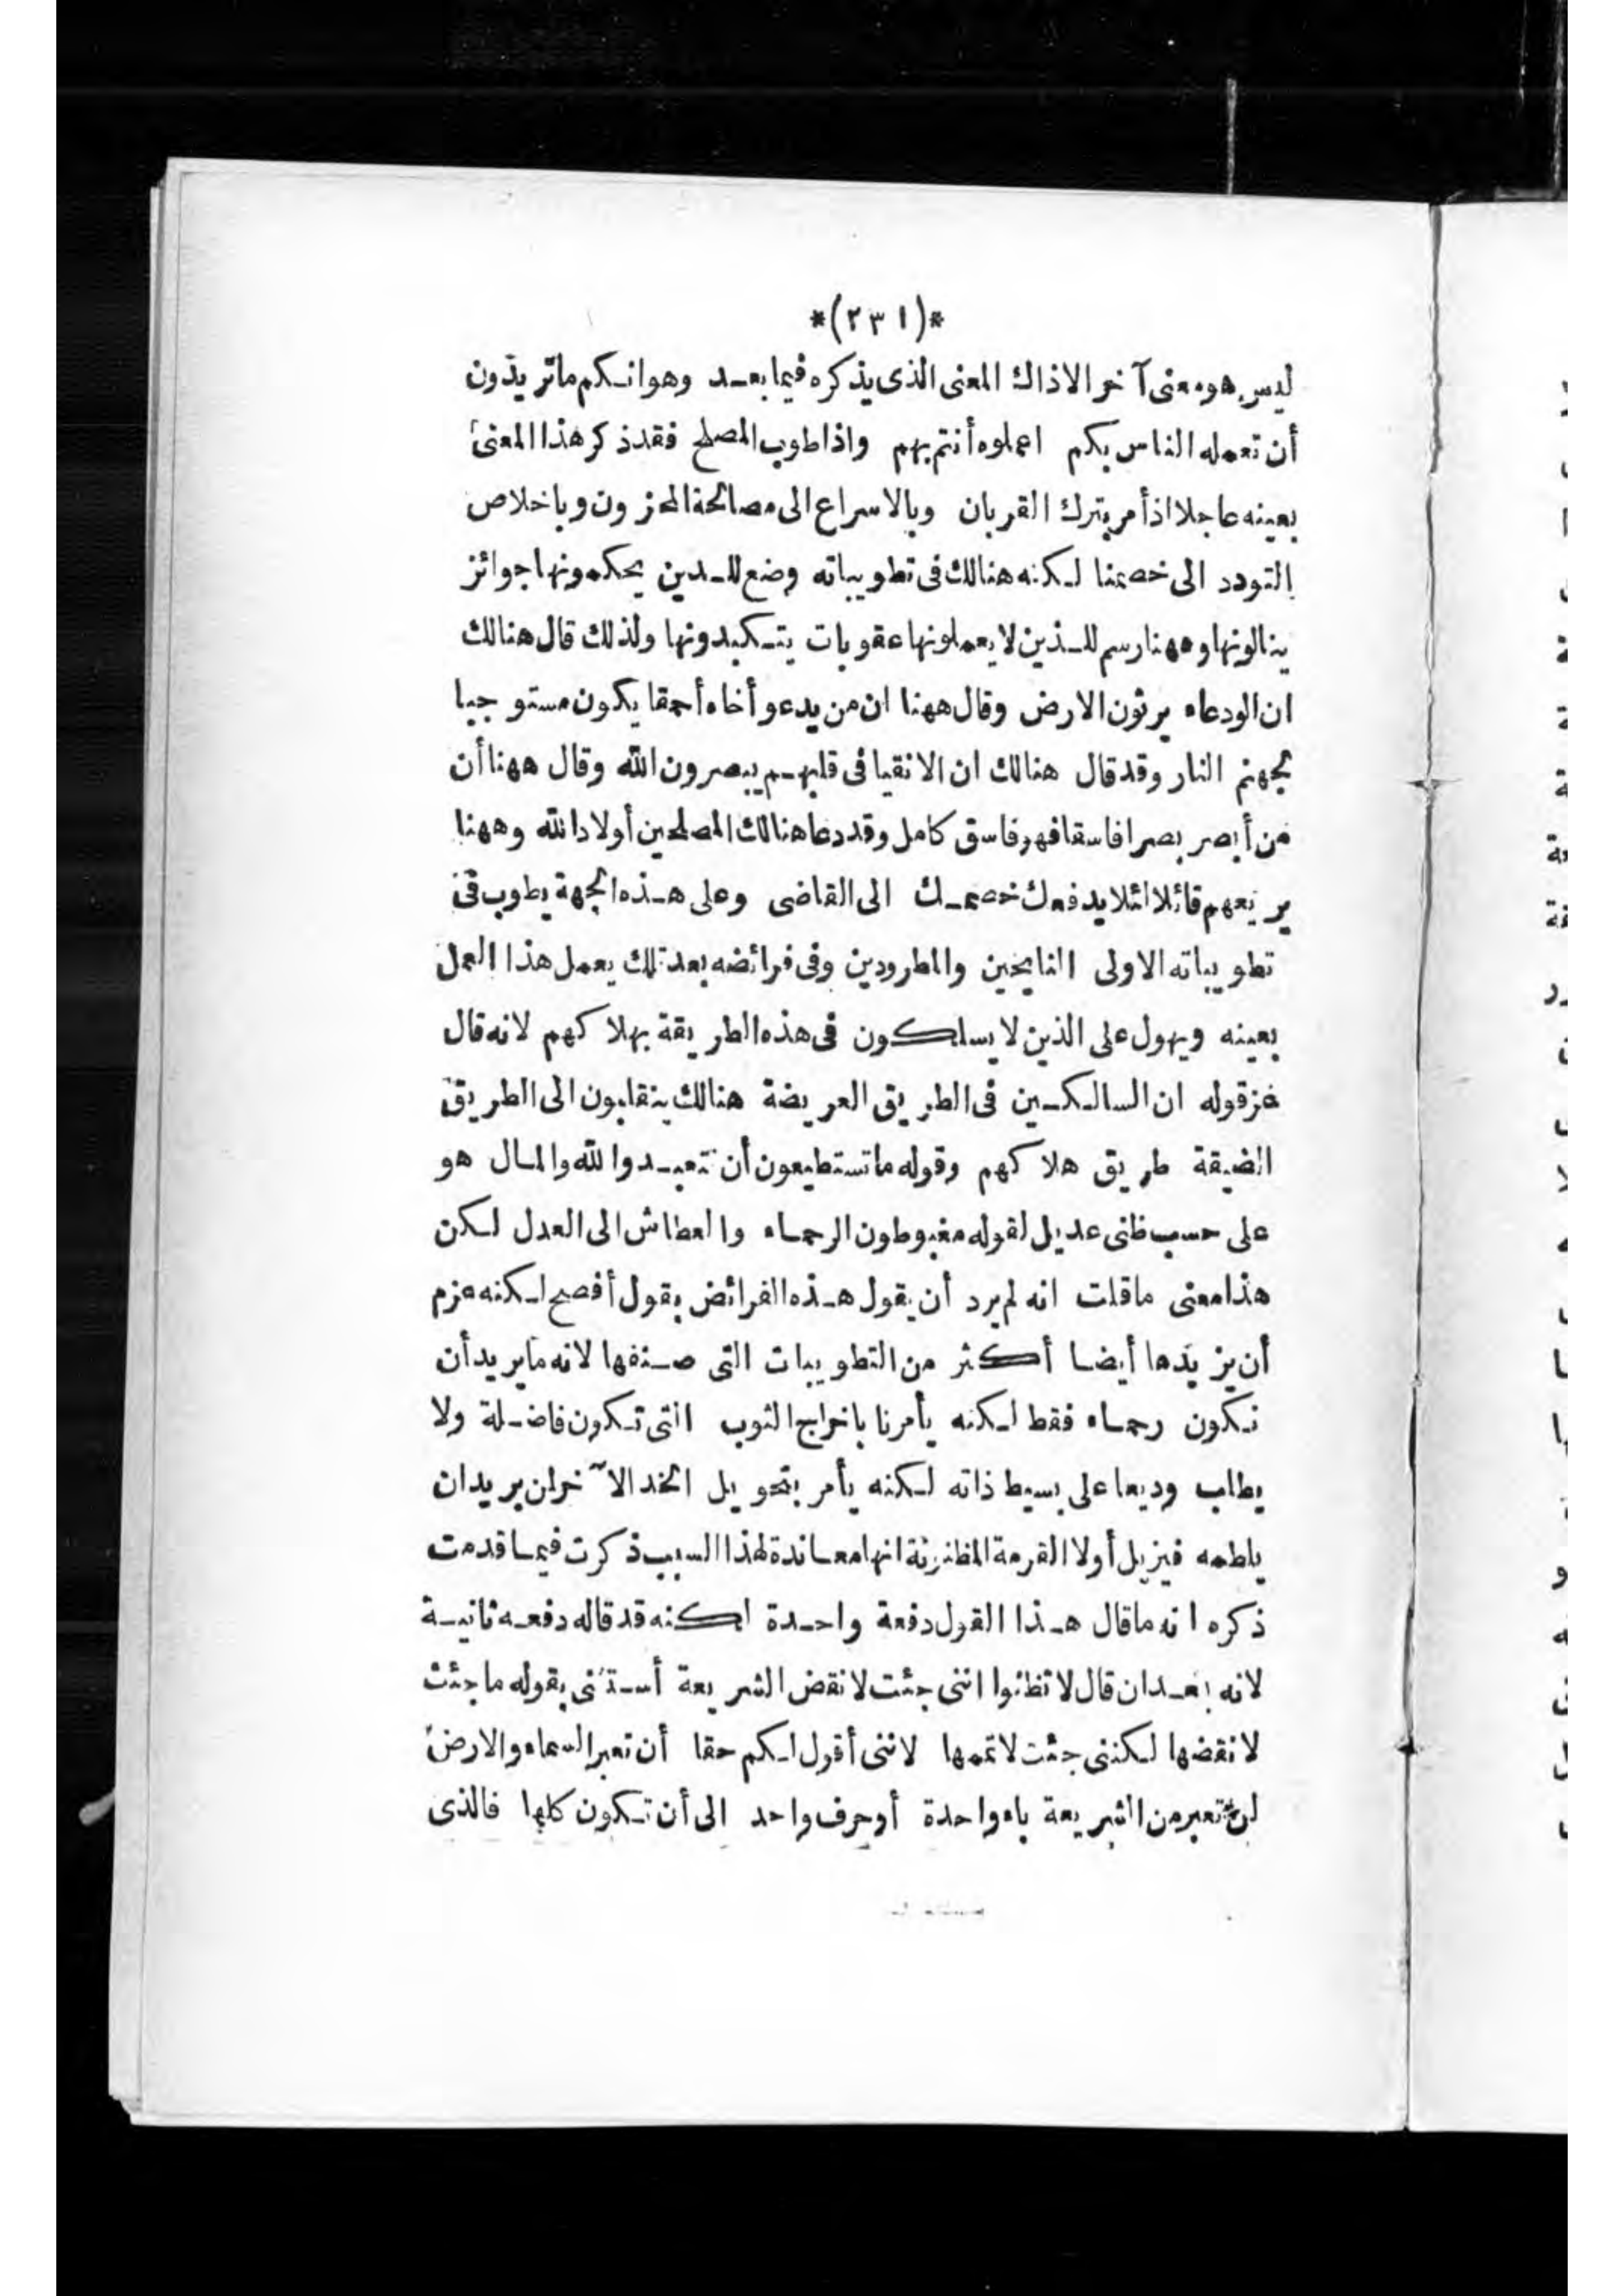 *(٢٣١)*
ليس هو معنى آخر الا ذاك المعنى الذى يذكره فيما بعد وهو انكم ما تريدون
أن تعمله الناس بكم اعملوه أنتم بهم واذا طوب المصلح فقد ذكر هذا المعنى
بعينه عاجلا اذ أمر بترك القربان وبالاسراع الى مصالحة المحزون وباخلاص
التودد الى خصمنا لكنه هنالك فى تطويباته وضع للدين يحكمونها جوائز
ينالونها وههنا رسم للذين لا يعملونها عقوبات يتكبدونها ولذلك قال هنالك
ان الودعاء يرثون الارض وقال ههنا ان من يدعو أخاه أحمقا يكون مستوجبا
لجهنم النار وقد قال هنالك ان الانقيا فى قلبهم يبصرون الله وقال ههنا أن
من أبصر بصرا فاسقا فهو فاسق كامل وقد دعا هنالك المصلحين أولاد الله وههنا
يريعهم قائلا لئلا يدفعك خصمك الى القاضى وعلى هذه الجهة يطوب فى
تطويباته الاولى النايحين والمطرودين وفى فرائضه بعد تلك يعمل هذا العمل
بعينه ويهول على الذين لا يسلكون فى هذه الطريقة بهلاكهم لانه قال
قوله ان السالكين فى الطريق العريضة هنالك ينقلبون الى الطريق
الضيقة طريق هلاكهم وقوله ما تستطيعون أن تتعبدوا لله والمال هو
على حسب ظنى عديل لقوله مغبوطون الرحماء والعطاش الى العدل لكن
هذا معنى ما قلت انه لم يرد أن يقول هذه الفرائض بقول أفصح لكنه عزم
أن يزيدها أيضا أكثر من التطويبات التى صنفها لانه ما يريد أن
نكون رحماء فقط لكنه يأمرنا باخراج الثوب التى تكون فاضلة ولا
يطلب وديعا على بسيط ذاته لكنه يأمر بتحويل الخد الآخر لمن يريد ان
يلطمه فيزيل أولا القرمة المظنونة انها معاندة لهذا السبب ذكرت فيما قدمت
ذكره انه ما قال هذا القول دفعة واحدة لكنه قد قاله دفعة ثانية
لانه بعد ان قال لا تظنوا اننى جئت لانقض الشريعة أستثنى بقوله ما جئت
لانقضها لكننى جئت لاتمها لاننى أقول لكم حقا أن تعبر السماء والارض
لن تعبر من الشريعة ياء واحدة أو حرف واحد الى أن تكون كلها فالذى